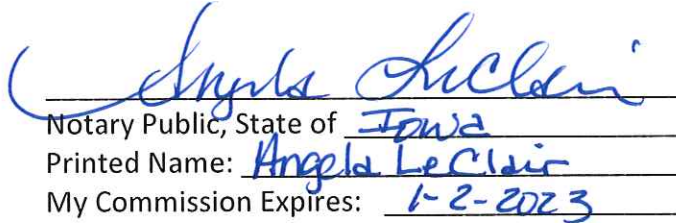 Angela LeClair
Notary Public, State of Iowa
Printed Name: Angela LeClair
My Commission Expires: 1-2-2023